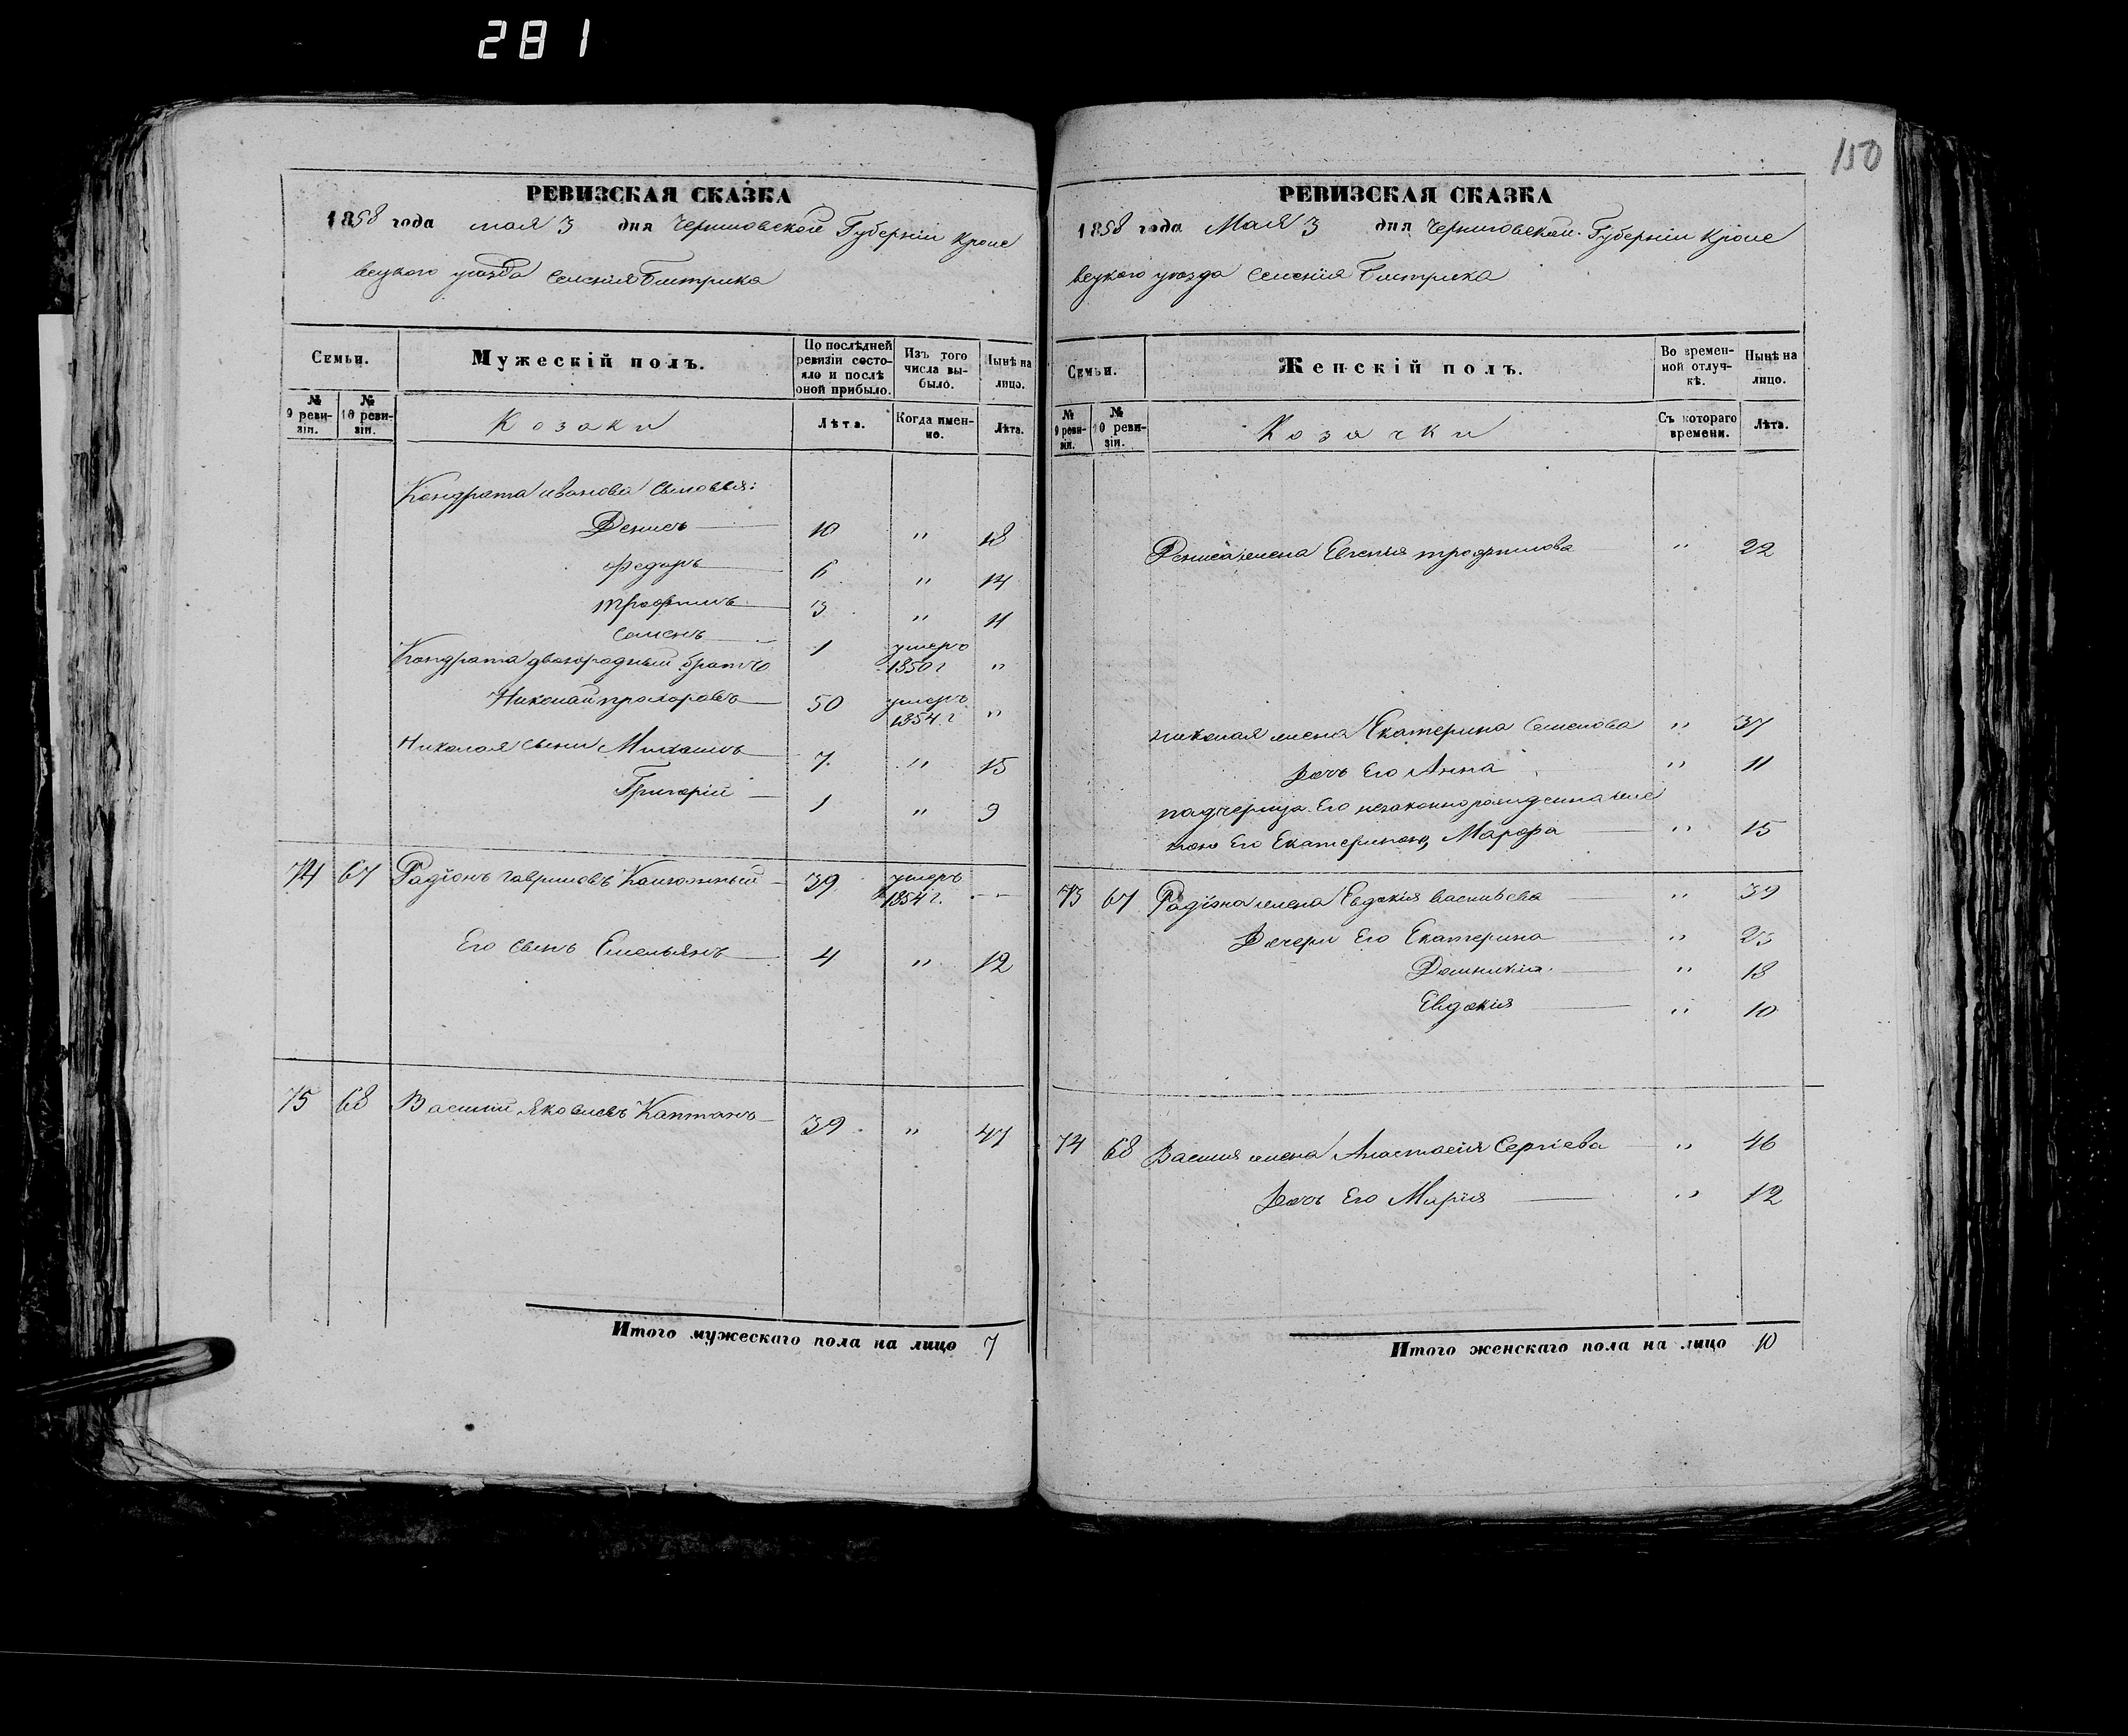 281
150
РЕВИЗСКАЯ СКАЗКА
1858 года мая 3 дня Черниговской Губерніи Кроле
вецкого уезда селенія Быстрика
Семьи. Мужескій полъ. По послѣдней ревизіи состояло и послѣ оной прибыло. Изъ того числа выбыло. Нынѣ на лицо.
№ 9 ревизіи. № 10 ревизіи. Козаки Лѣта. Когда именно. Лѣта.
Кондрата иванова сыновья:
Денисъ 10 " 18
Федоръ 6 " 14
Трофимъ 3 " 11
Семенъ 1 умеръ 1850 г "
Кондрата двоюродный братъ
Николай прохоровъ 50 умеръ 1854 г "
Николая сыни Михаилъ 7 " 15
Григорій 1 " 9
74 67 Радіонъ гавриловъ 39 умеръ 1854 г.
Его сынъ Емельянъ 4 " 12
75 68 Василий Яковлевъ Каптанъ 39 " 47
Итого мужескаго пола на лицо 7
РЕВИЗСКАЯ СКАЗКА
1858 года Мая 3 дня Черниговской Губерніи Кроле
вецкого уезда селенія Быстрика
Семьи. Женскій полъ. Во временной отлучкѣ. Нынѣ на лицо.
№ 9 ревизіи. № 10 ревизіи. Козачки Съ котораго времени. Лѣта.
Дениса жена Евгенія трофимова " 22
николая жена Екатерина Семенова " 37
Дочь Его Анна " 11
падчерица Его незаконнорожденна же
ною Его Екатериною, Марфа " 15
73 67 Радіона жена Евдокія васильева " 39
Дочери Его Екатерина "
Домникія " 18
Евдокія " 10
74 68 Василия жена Анастасія Сергіева " 46
Дочь Его Марія " 12
Итого женскаго пола на лицо 10